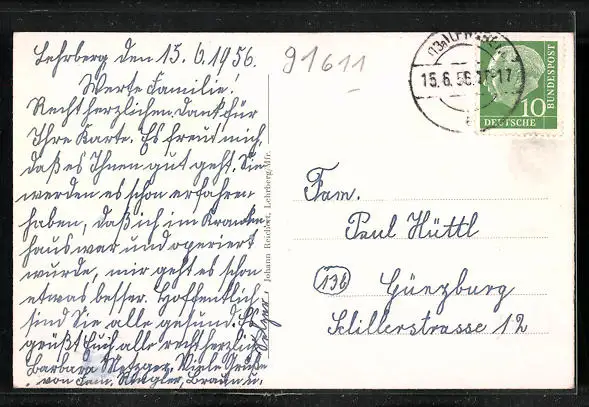 Lehrberg den 15.6.1956.
Werte Familie!
Recht herzlichen Dank für
Ihre Karte. Es freut mich,
daß es Ihnen gut geht. Sie
werden es schon erfahren
haben, daß ich im Kranken
haus war und operiert
wurde, mir geht es schon
etwas besser. Hoffentlich
sind Sie alle gesund. Es
grüßt Euch alle recht herzlich
Barbara Metzger. Viele Grüße
von Fam.
91611
Johann Reidlert, Lehrberg/Mfr.
15.6.56.
10
DEUTSCHE
BUNDESPOST
Fam.
Paul Hüttl
(13b) Günzburg
Schillerstrasse 12